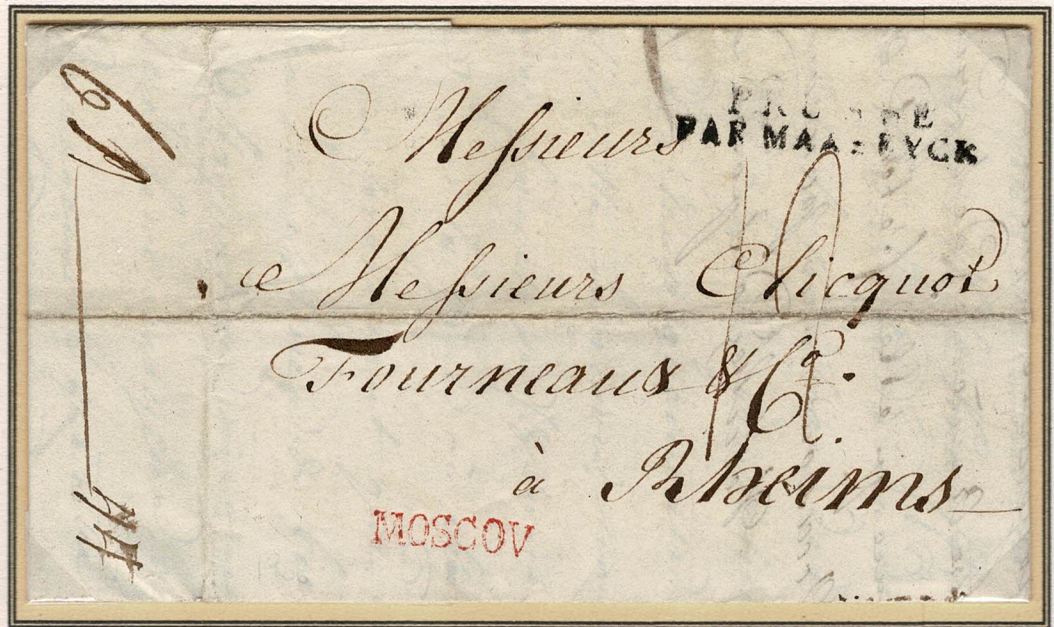 PRUSSE
PAR MAASEYCK
Messieurs
Messieurs Clicquot
Fourneaux & Co.
à Rheims
MOSCOV